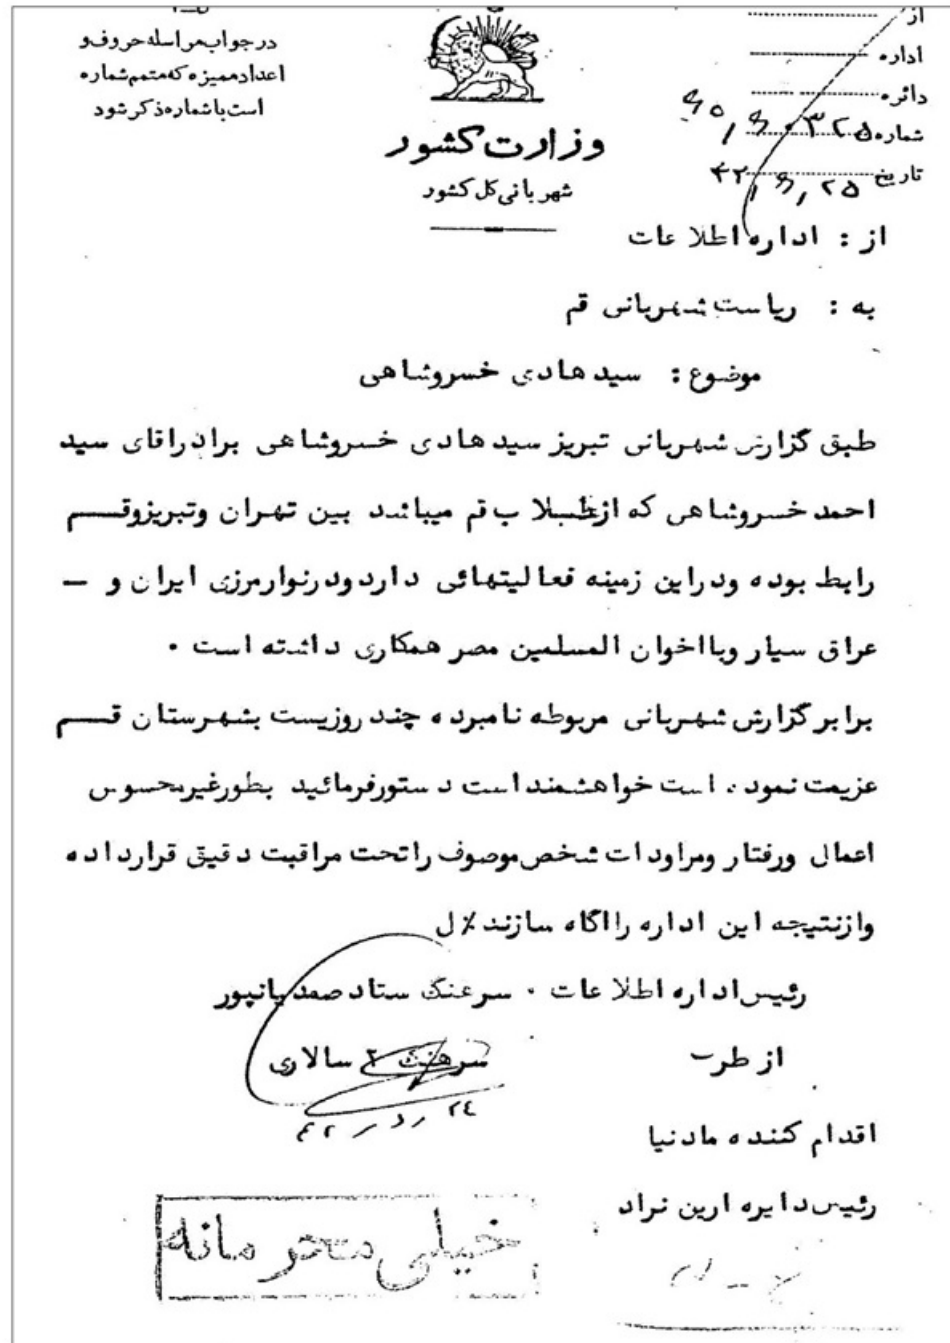 در جواب مراسله حروف و
اعداد ممیزه که متمم شماره
است با شماره ذکر شود
وزارت کشور
شهربانی کل کشور
از
اداره
دائره
شماره
تاریخ ۴۲٫۶٫۲۵
از : اداره اطلاعات
به : ریاست شهربانی قم
موضوع : سید هادی خسروشاهی
طبق گزارش شهربانی تبریز سید هادی خسروشاهی برادر اقای سید
احمد خسروشاهی که از طلاب قم میباشد بین تهران وتبریز وقم
رابط بوده ودراین زمینه فعالیتهائی دارد ودرنوارمرزی ایران و –
عراق سیار وبااخوان المسلمین مصر همکاری داشته است .
برابر گزارش شهربانی مربوطه نامبرده چند روزیست بشهرستان قم
عزیمت نموده است خواهشمند است دستورفرمائید بطورغیرمحسوس
اعمال ورفتار ومراودات شخص موصوف راتحت مراقبت دقیق قرارداده
وازنتیجه این اداره رااگاه سازند ٪ ل
رئیس اداره اطلاعات . سرهنگ ستاد صمدیانپور
از طرف سرهنگ ۲ سالاری
اقدام کننده مادنیا
رئیس دایره ارین نراد
خیلی محرمانه